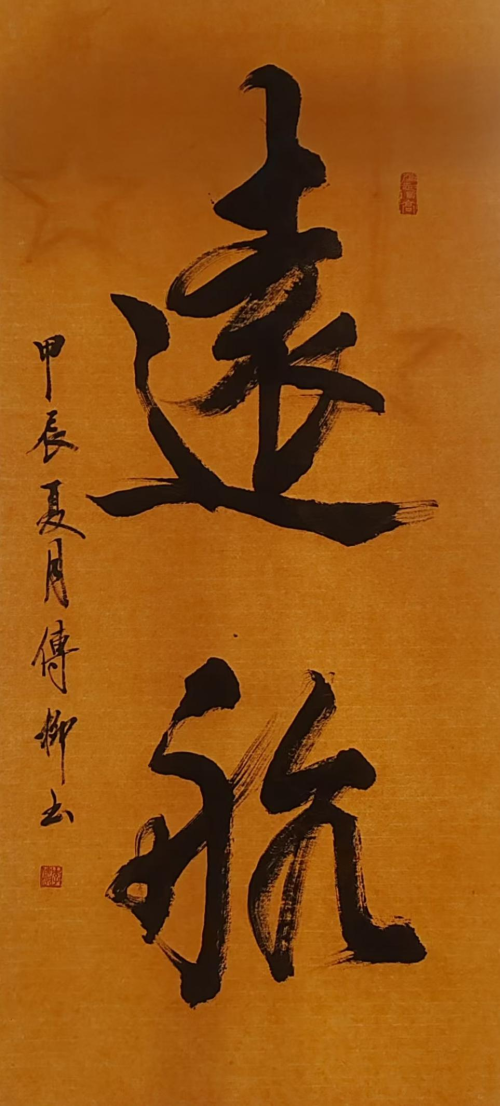 遠航
甲辰夏月傅柳书